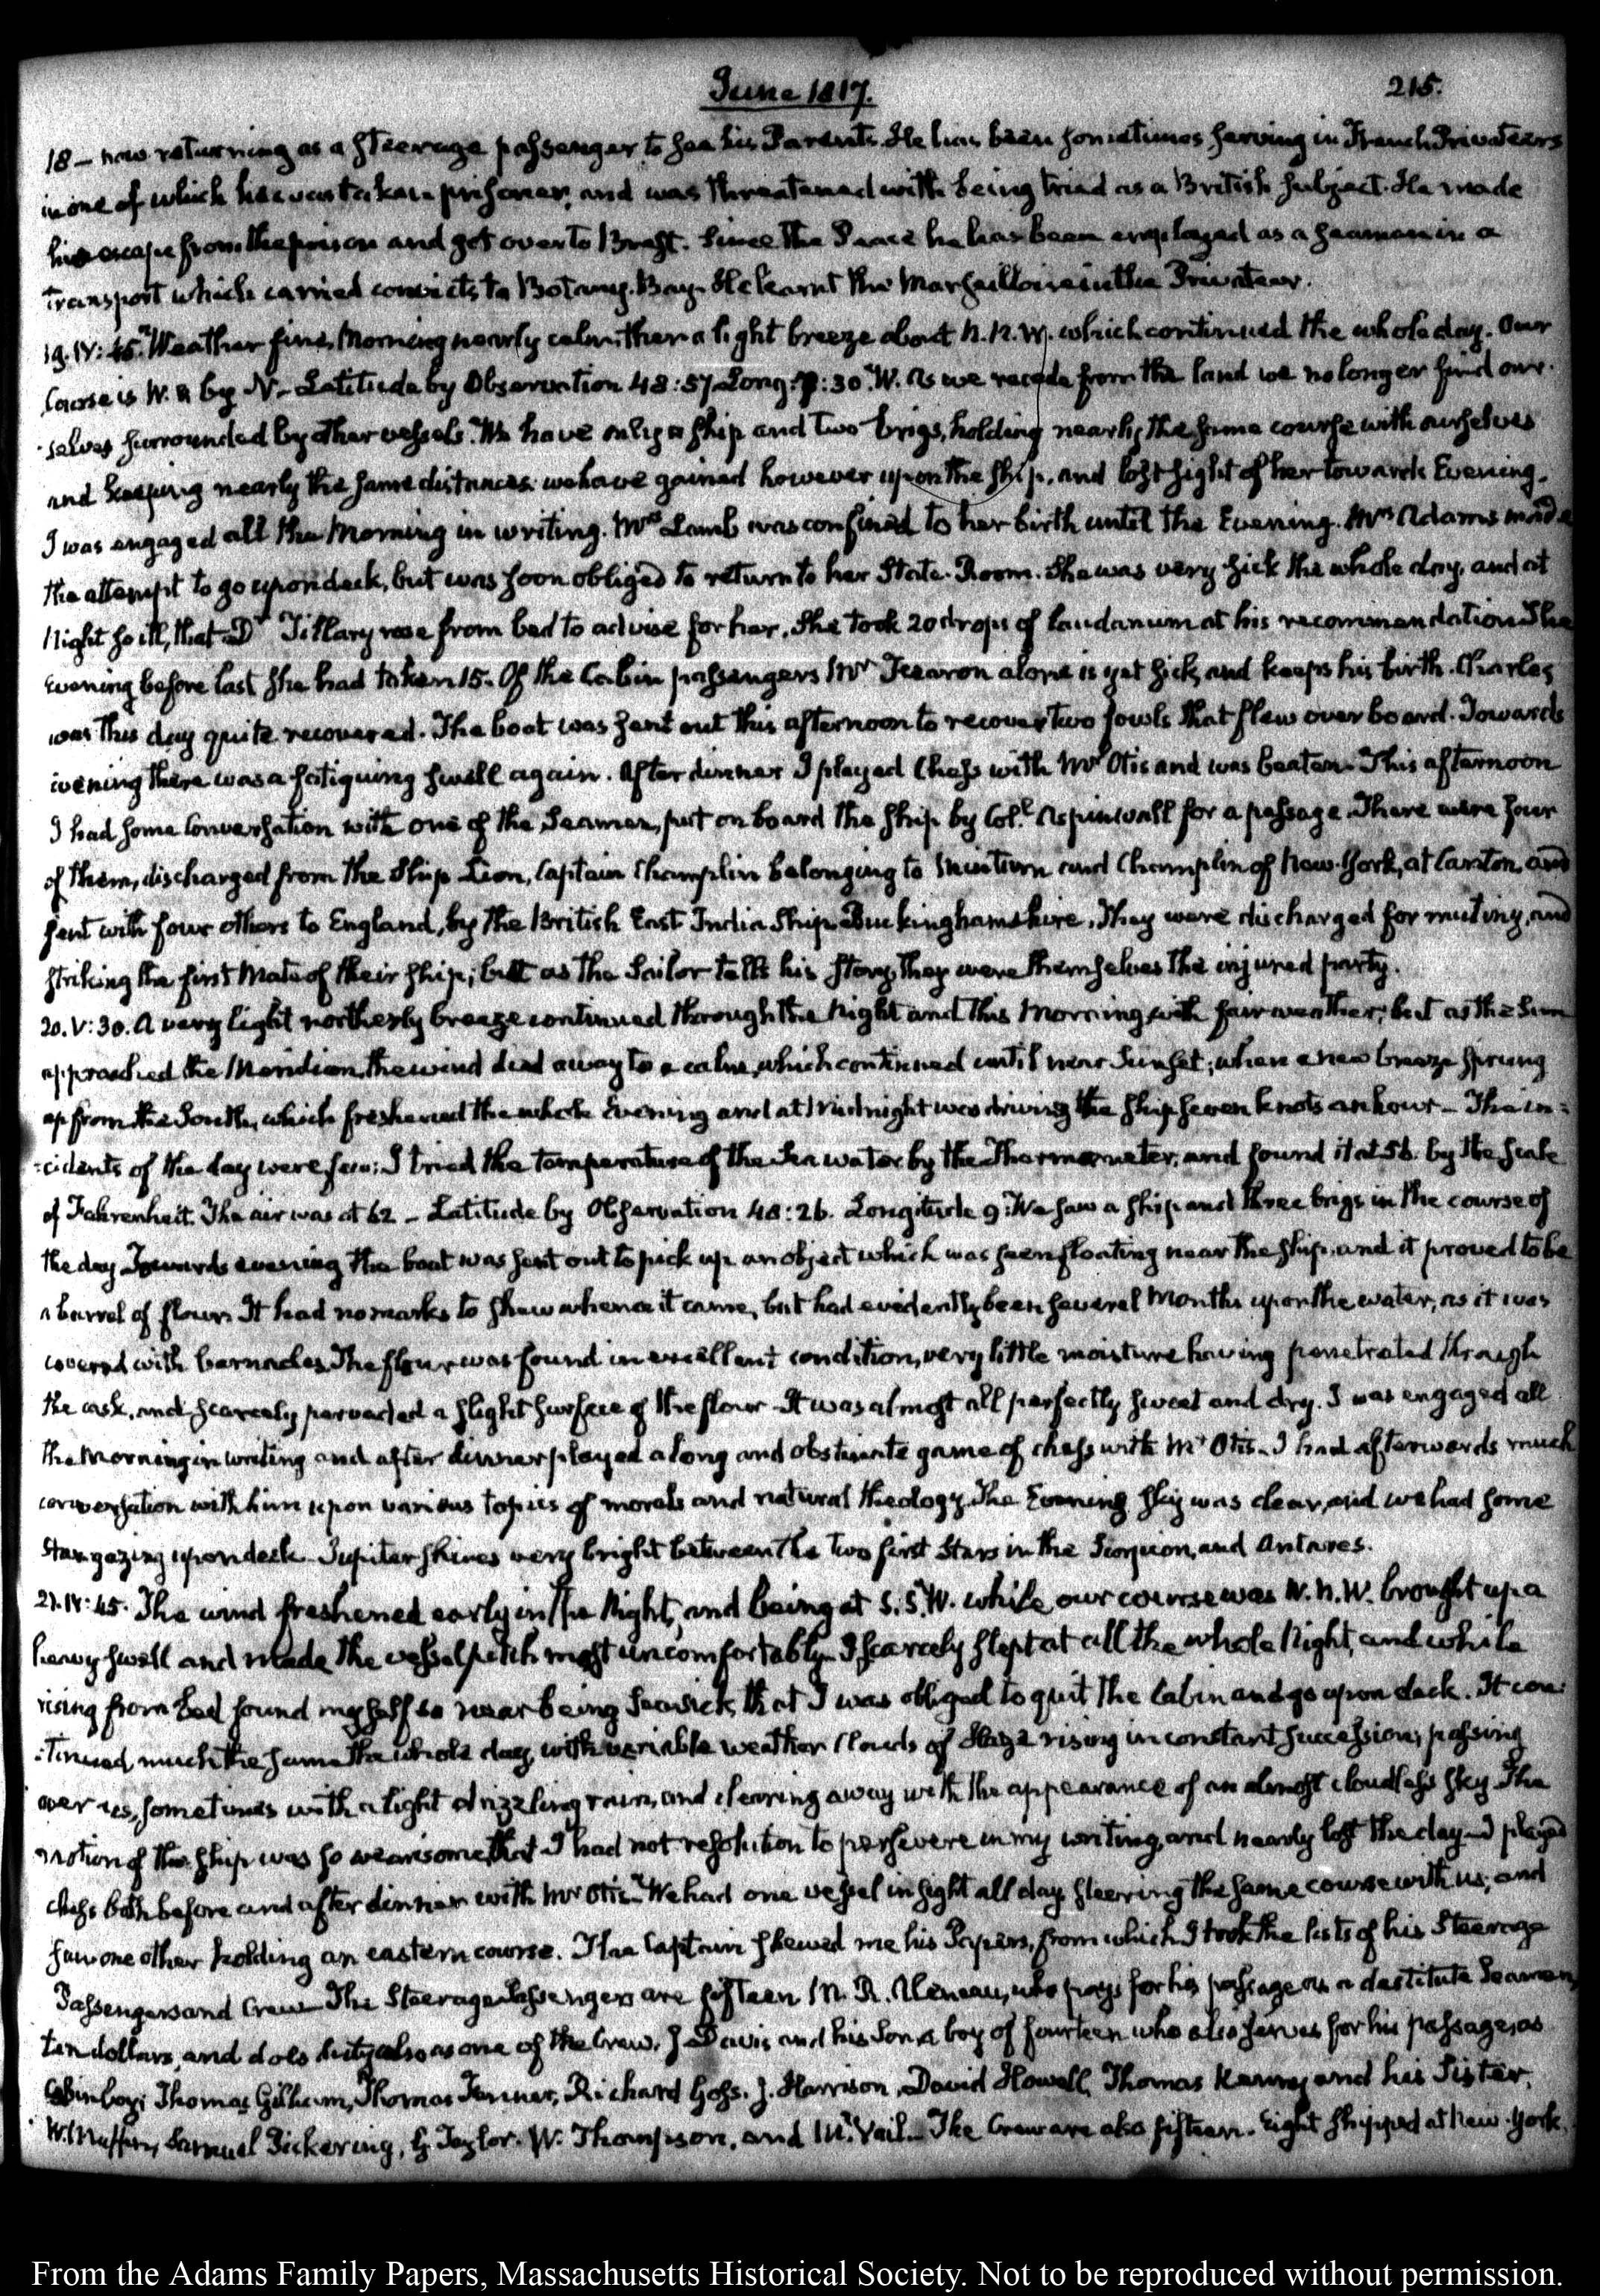 June 1817.
215.
18 — now returning as a steerage passenger to see his Parents. He has been sometimes serving in French Privateers
in one of which he was taken prisoner, and was threatened with being tried as a British subject. He made
his escape from the prison and got over to Brest. Since the Peace he has been employed as a seaman in a
transport which carried convicts to Botany-Bay. He learnt the Marseilloise in the Privateer.
19. IV: 45. Weather fine. Morning nearly calm: then a light breeze about N.N.W. which continued the whole day. Our
Course is W. by N— Latitude by Observation 48:57 Long: 7:30. W. As we recede from the land we no longer find our-
-selves surrounded by other vessels. We have only a ship and two brigs, holding nearly the same course with ourselves
and keeping nearly the same distances. we have gained however upon the ship, and lost sight of her towards Evening.
I was engaged all the Morning in writing. Mrs Lamb was confined to her birth until the Evening. Mrs Adams made
the attempt to go upon deck, but was soon obliged to return to her State-Room. She was very sick the whole day, and at
Night so ill, that Dr Tillary rose from bed to advise for her. She took 20 drops of laudanum at his recommendation. The
evening before last she had taken 15. Of the Cabin passengers Mr Fearon alone is yet sick, and keeps his birth. Charles
was this day quite recovered. The boat was sent out this afternoon to recover two fowls that flew over board. Towards
evening there was a fatiguing swell again. After dinner I played Chess with Mr Otis and was beaten. This afternoon
I had some Conversation with one of the Seamen, put on board the ship by Coll. Aspinwall for a passage. There were four
of them, discharged from the Ship Lion, Captain Champlin belonging to Minturn and Champlin of New-York, at Canton, and
sent with four others to England, by the British East India Ship Buckinghamshire. They were discharged for mutiny, and
striking the first Mate of their ship; but as the Sailor tells his story, they were themselves the injured party.
20. V: 30. A very light northerly breeze continued through the Night and this Morning, with fair weather; but as the Sun
approached the Meridian, the wind died away to a calm, which continued until near Sunset; when a new breeze sprung
up from the South, which freshened the whole Evening and at Midnight was driving the ship seven knots an hour — The in=
=cidents of the day were few: I tried the temperature of the Sea water by the Thermometer, and found it at 56. by the scale
of Fahrenheit. The air was at 62 — Latitude by Observation 48:26. Longitude 9: We saw a ship and three brigs in the course of
the day. Towards evening the boat was sent out to pick up an object which was seen floating near the ship, and it proved to be
a barrel of flour. It had no marks to shew whence it came, but had evidently been several Months upon the water, as it was
covered with barnacles. The flour was found in excellent condition, very little moisture having penetrated through
the cask, and scarcely pervaded a slight surface of the flour. It was almost all perfectly sweet and dry. I was engaged all
the Morning in writing and after dinner played a long and obstinate game of chess with Mr Otis. I had afterwards much
conversation with him upon various topics of morals and natural theology. The Evening sky was clear, and we had some
Star gazing upon deck. Jupiter shines very bright between the two first Stars in the Scorpion, and Antares.
21. IV: 45. The wind freshened early in the Night, and being at S.S.W. while our course was W.N.W. brought up a
heavy swell and made the vessel pitch most uncomfortably. I scarcely slept at all the whole Night, and while
rising from bed found myself so near being Seasick, that I was obliged to quit the Cabin and go upon deck. It con=
=tinued much the same the whole day, with variable weather Clouds of Haze rising in constant succession, passing
over us, sometimes with a light drizzling rain, and clearing away with the appearance of an almost cloudless sky. The
motion of the ship was so wearisome, that I had not resolution to persevere in my writing, and nearly lost the day. I played
chess both before and after dinner with Mr Otis. We had one vessel in sight all day, steering the same course with us; and
saw one other holding an eastern course. The Captain shewed me his Papers, from which I took the lists of his Steerage
Passengers and Crew. The Steerage Passengers are fifteen N. R. who pays for his passage as a destitute Seaman,
ten dollars, and does duty also as one of the Crew. J Davis and his Son a boy of fourteen who also serves for his passage, as
Cabin boy; Thomas Gilham, Thomas Fenner, Richard Goss. J. Harrison, David Howell, Thomas and his Sister,
W. Samuel Pickering, G. Taylor. W. Thompson, and M. Vail. The Crew are also fifteen. Eight shipped at New-York.
From the Adams Family Papers, Massachusetts Historical Society. Not to be reproduced without permission.